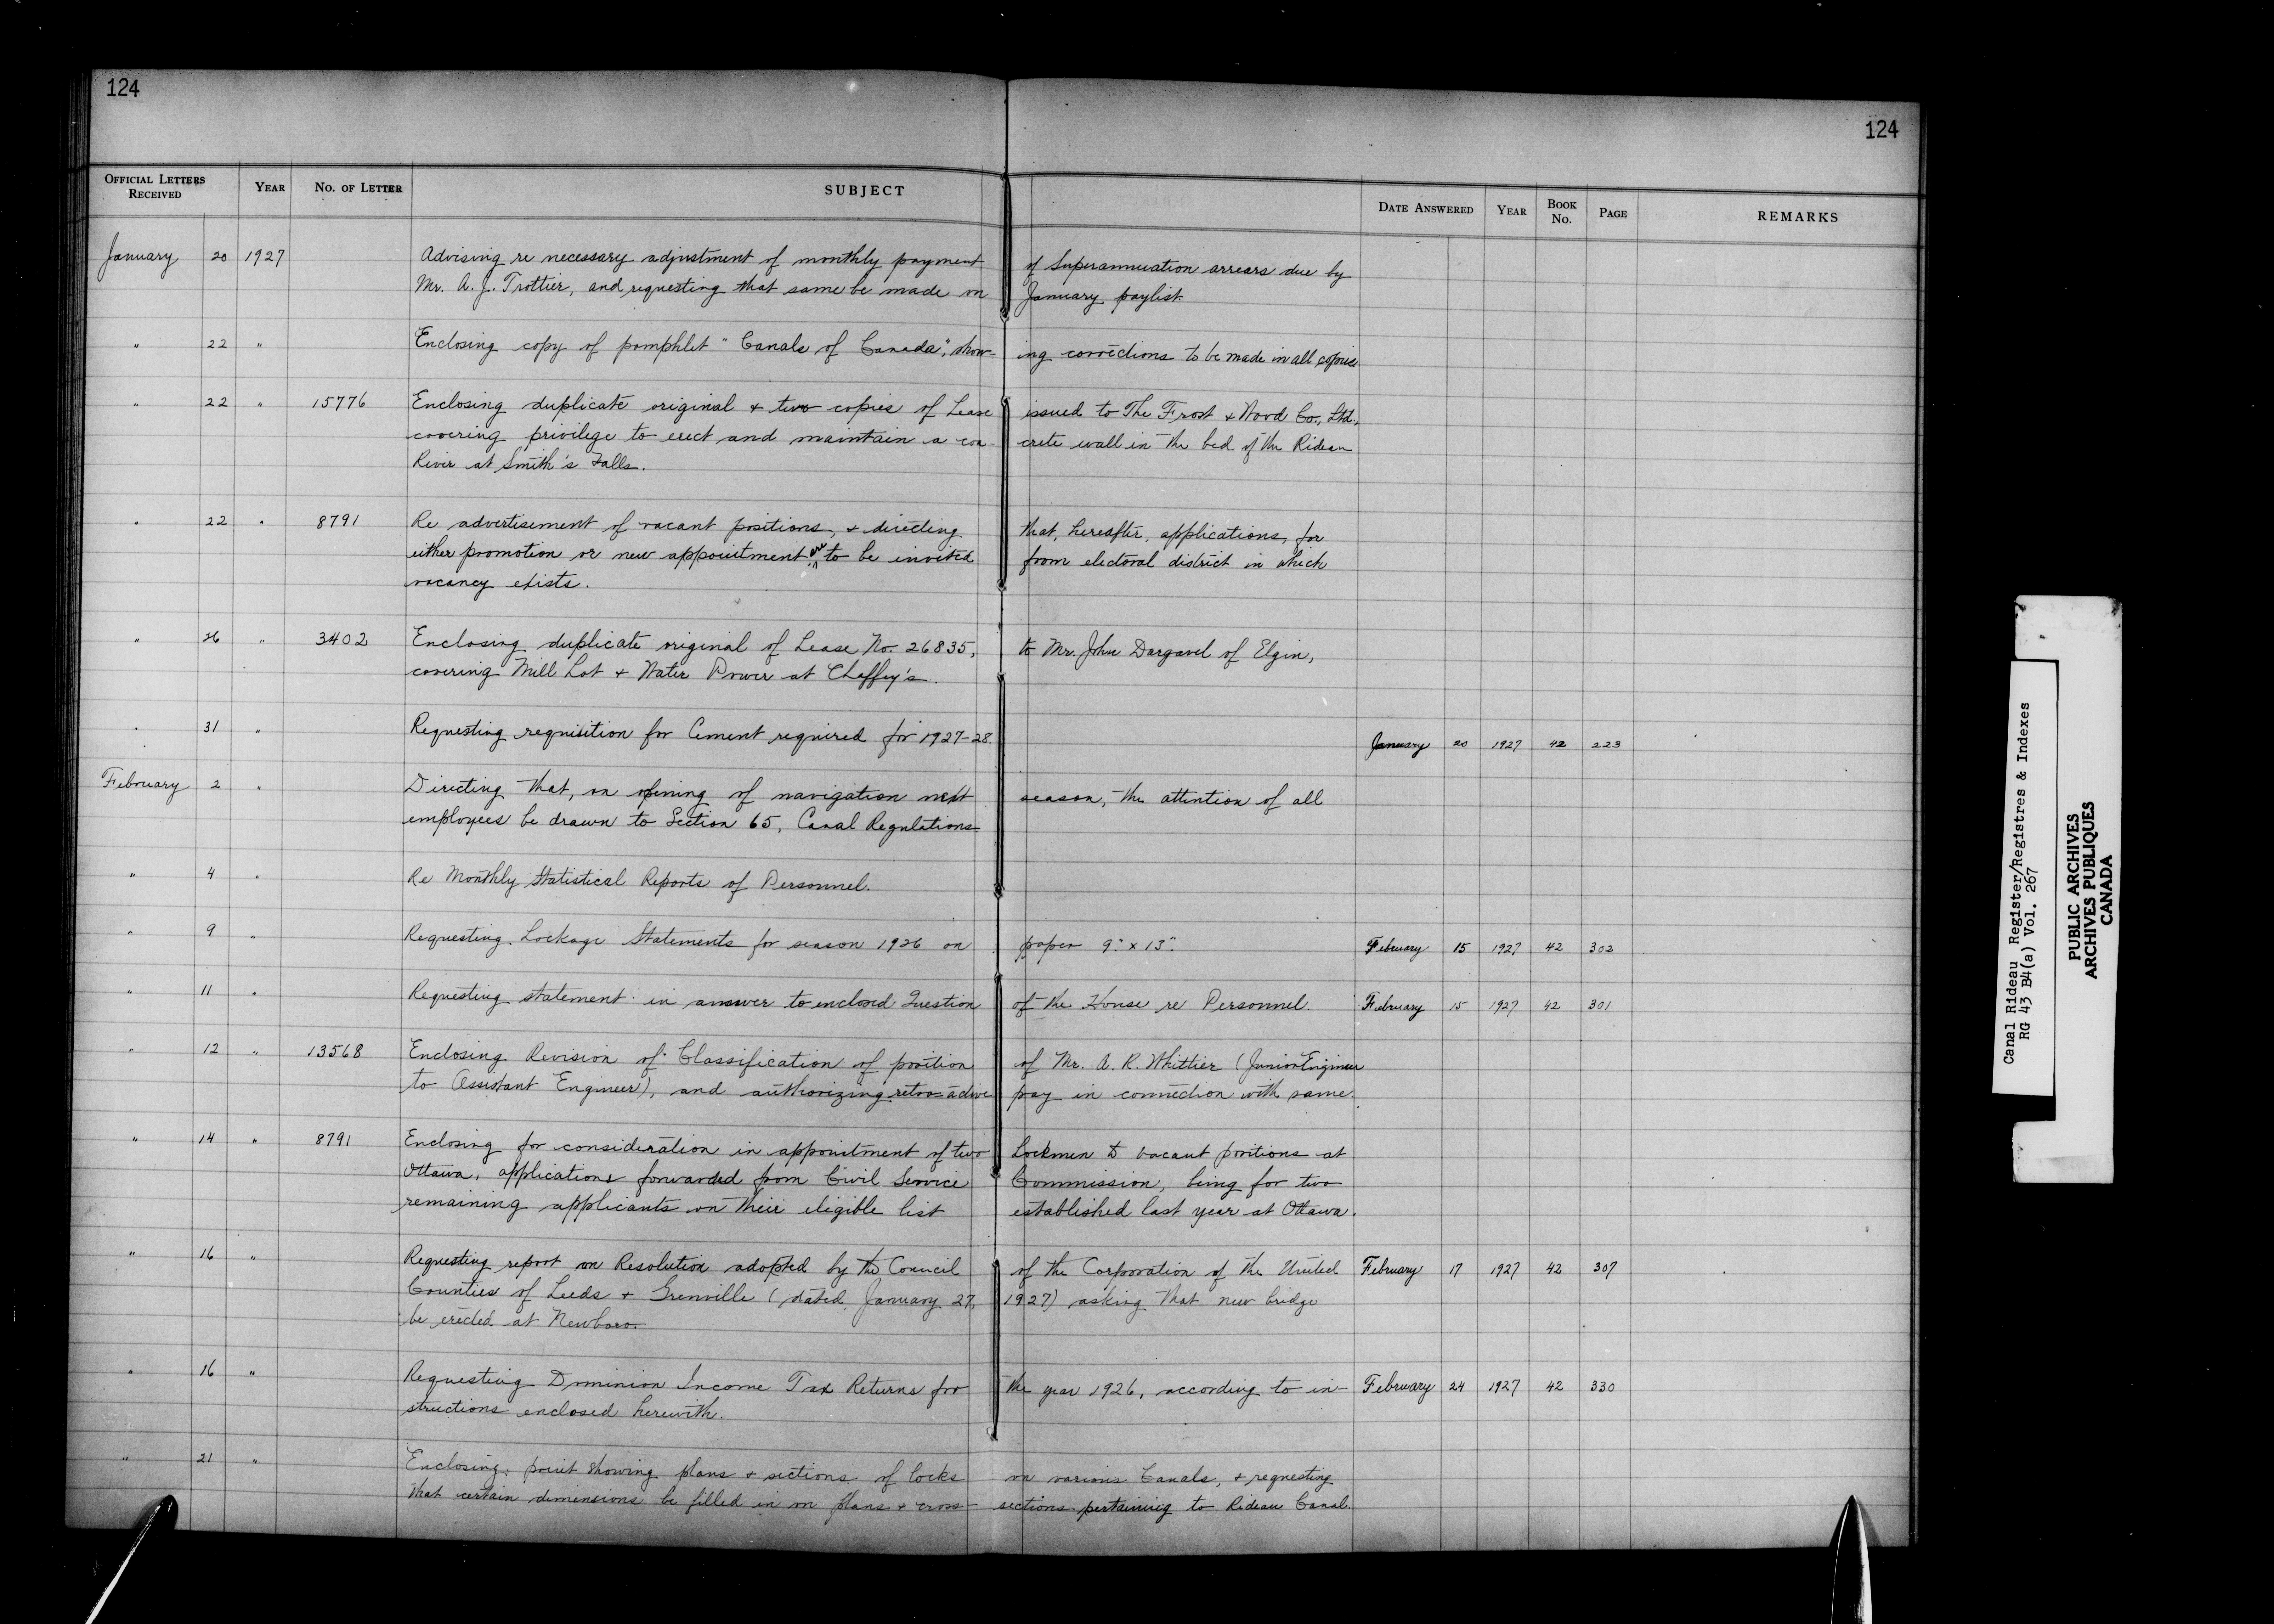 124
124
OFFICIAL LETTERS RECEIVED YEAR NO. OF LETTER SUBJECT DATE ANSWERED YEAR BOOK No. PAGE REMARKS
January 20 1927 Advising re necessary adjustment of monthly payment of Superannuation arrears due by
Mr. A. J. Trottier, and requesting that same be made on January paylist.
" 22 " Enclosing copy of pamphlet "Canals of Canada", show- ing corrections to be made in all copies
" 22 " 15776 Enclosing duplicate original + two copies of Lease issued to The Frost & Wood Co., Ltd.,
covering privilege to erect and maintain a con- crete wall in the bed of the Rideau
River at Smith's Falls.
" 22 " 8791 Re advertisement of vacant positions, + directing that, hereafter, applications, for
either promotion or new appointment are to be invited from electoral district in which
vacancy exists.
" 26 " 3402 Enclosing duplicate original of Lease No. 26835, to Mr. John Dargavel of Elgin,
covering Mill Lot + Water Power at Chaffey's.
" 31 " Requesting requisition for Cement required for 1927-28. January 20 1927 42 223
February 2 " Directing that, on opening of navigation next season, the attention of all
employees be drawn to Section 65, Canal Regulations
" 4 " Re Monthly Statistical Reports of Personnel.
" 9 " Requesting Lockage Statements for season 1926 on paper 9" x 13". February 15 1927 42 302
" 11 " Requesting statement in answer to enclosed Question of the House re Personnel. February 15 1927 42 301
" 12 " 13568 Enclosing Revision of Classification of position of Mr. A. R. Whittier (Junior Engineer
to Assistant Engineer), and authorizing retro-active pay in connection with same.
" 14 " 8791 Enclosing for consideration in appointment of two Lockmen to vacant positions at
Ottawa, applications forwarded from Civil Service Commission, being for two
remaining applicants on their eligible list established last year at Ottawa.
" 16 " Requesting report on Resolution adopted by the Council of the Corporation of the United February 17 1927 42 307
Counties of Leeds + Grenville (dated January 27, 1927) asking that new bridge
be erected at Newboro.
" 16 " Requesting Dominion Income Tax Returns for the year 1926, according to in- February 24 1927 42 330
structions enclosed herewith.
" 21 " Enclosing print showing plans + sections of locks on various Canals, + requesting
that certain dimensions be filled in on plans + cross- sections pertaining to Rideau Canal.
Canal Rideau Register/Registres & Indexes
RG 43 B4(a) Vol. 267
PUBLIC ARCHIVES
ARCHIVES PUBLIQUES
CANADA